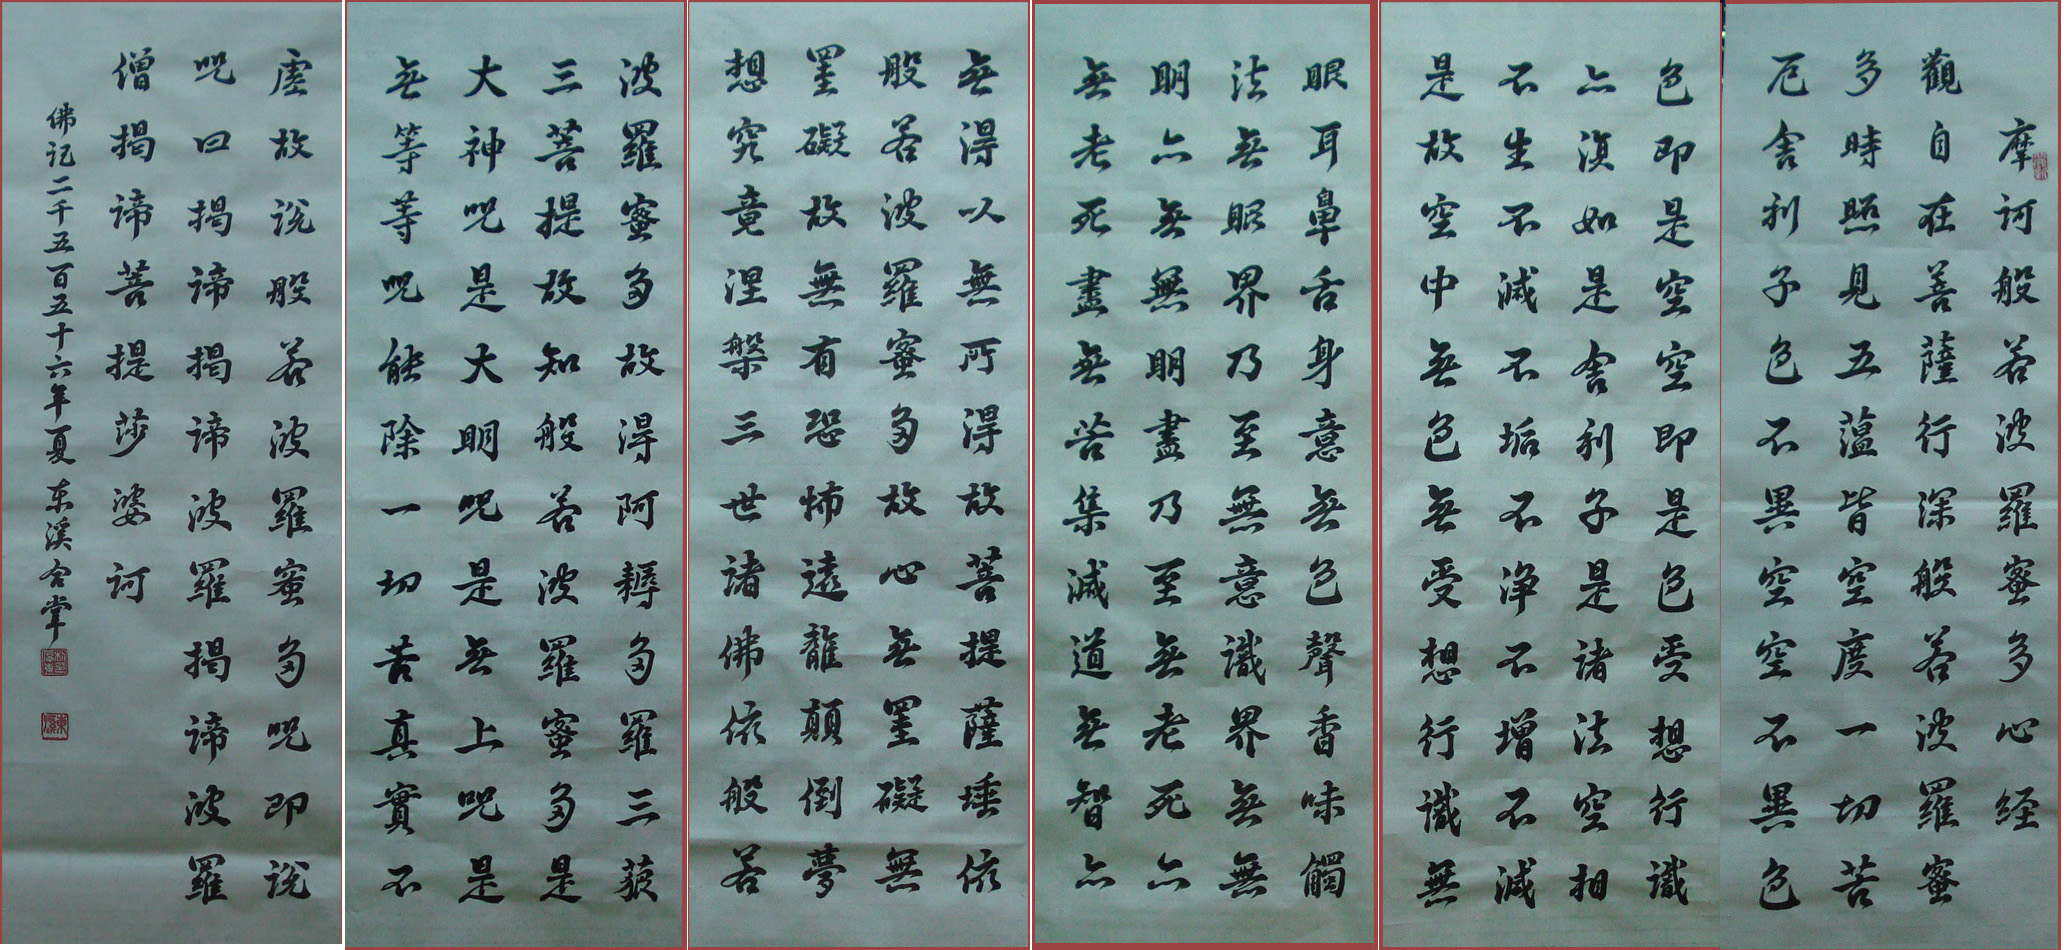 摩訶般若波羅蜜多心経
觀自在菩薩行深般若波羅蜜
多時照見五蘊皆空度一切苦
厄舍利子色不異空空不異色
色即是空空即是色受想行識
亦復如是舍利子是諸法空相
不生不滅不垢不淨不增不減
是故空中無色無受想行識無
眼耳鼻舌身意無色聲香味觸
法無眼界乃至無意識界無無
明亦無無明盡乃至無老死亦
無老死盡無苦集滅道無智亦
無得以無所得故菩提薩埵依
般若波羅蜜多故心無罣礙無
罣礙故無有恐怖遠離顛倒夢
想究竟涅槃三世諸佛依般若
波羅蜜多故得阿耨多羅三藐
三菩提故知般若波羅蜜多是
大神呪是大明呪是無上呪是
無等等呪能除一切苦真實不
虛故說般若波羅蜜多呪即說
呪曰揭諦揭諦波羅揭諦波羅
僧揭諦菩提莎婆訶
佛记二千五百五十六年夏 东溪合掌